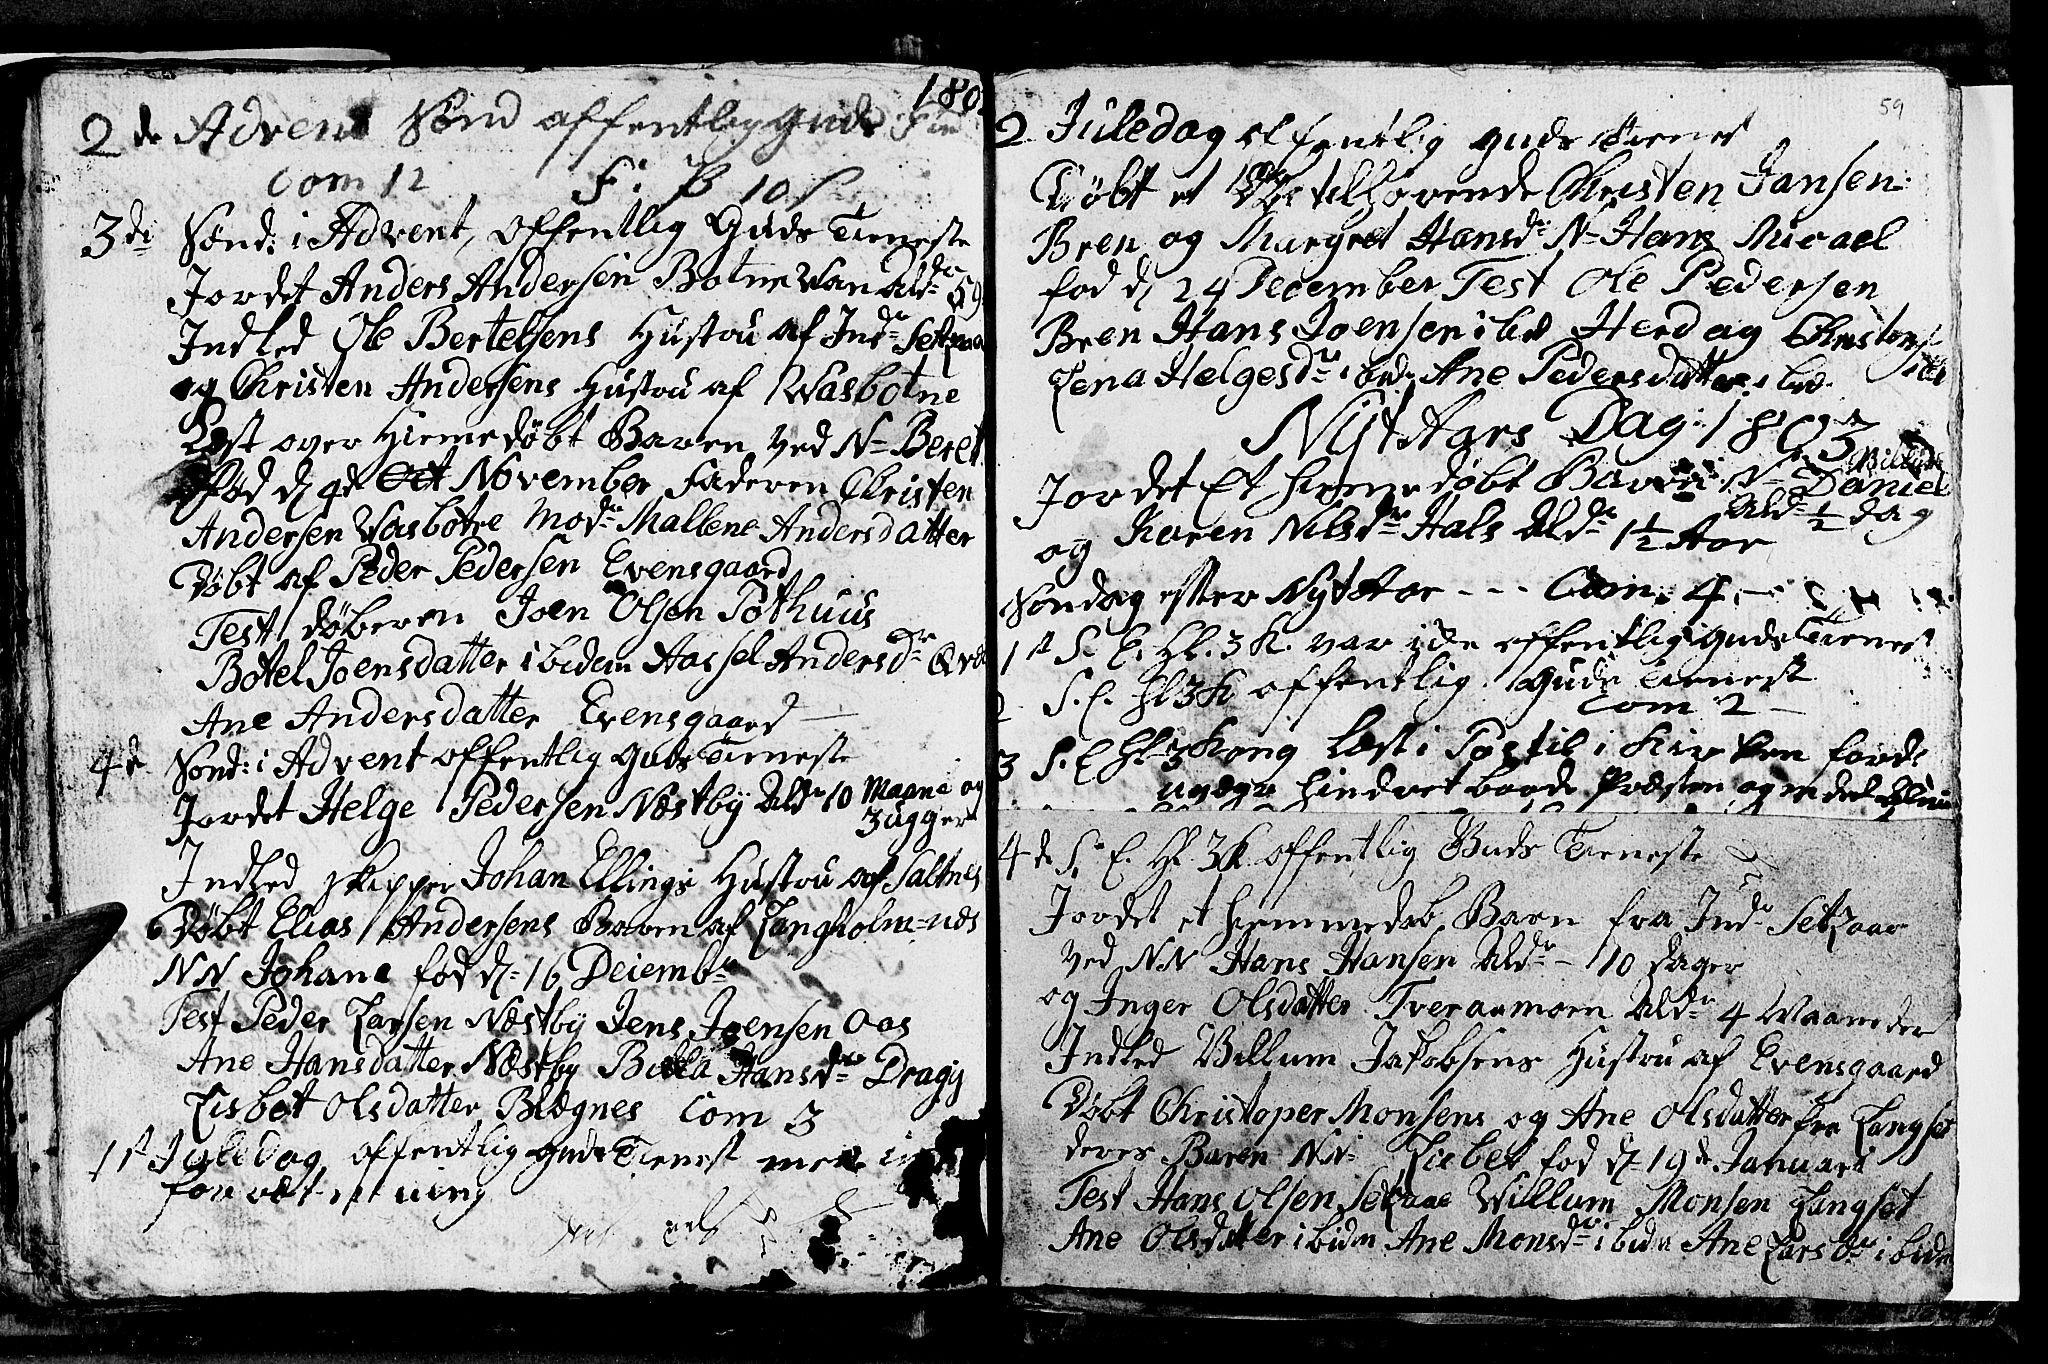 180
2 de Advent Sönd offentlig Guds
Com 12 F. P 10 s
3 di Sönd: i Advent, offentlig Guds Tieneste
Jordet Anders Andersen Botnevan Ald:
Indled Ole Bertelsens Hustru af Ind: Setzaa
og Christen Andersens Hustru af Wasbotne
Læst over Hiemedöbt Baren ved N- Beret
Föd d 4de November Faderen Christen
Andersen Vasbotne Mod: Mallene Andersdatter
Döbt af Peder Pedersen Evensgaard
Test döberen Joen Olsen Pothuus
Botel Joensdatter ibidem Aassel Andersd:
Ane Andersdatter Evensgaard
4 d Sönd: i Advent offentlig Guds Tieneste
Jordet Helge Pedersen Næstbÿ Ald: 10 Maane og
3 ugger
Indled skipper Johan Ellings Hustru af Saltnes
Döbt Elias Andersens Baren af Langholm=næs
N N Johana fod d- 16 Deiemb:
Test Peder Larsen Næstbÿ Jens Joensen Aas
Ane Hansdatter Næstbÿ Hansd: Dragÿ
Lisbet Olsdatter Blægnes Com 3
1st Juledag offentlig Guds Tienest
59
2 Juledag offentlig Guds Tienest
Döbt et tilhörende Christen Jansen
Bren og Margret Hansd: N- Hans Micael
fod d 24 December Test Ole Pedersen
Bren Hans Joensen ibid Christens
Lena Helgesd: ibid: Ane Pedersdatter ibid
Nÿt Aars Dag: 1803
Jordet Et hieme döbt Baren N- Daniel
Ald: 1/2 dag
og Karen Nilsd: Hals Ald: 1 1/2 Aar
Söndag efter Nÿt Aar - - - Com. 4
1st S. E. Hl. 3 K. var ide offentlig Guds Tienest
2 S. E. Hl 3 K offentlig Guds Tienest
Com 2
3 S. E Hl 3 Kong Læst i Postil i Kirken fordi
hindret baade Præsten og en deel
4 de S. E. Hl. 3 K. offentlig Guds Tieneste
Jordet et hiemmedöb Baren fra Ind: Setzaae
ved N N Hans Hansen Ald: - 10 dager
og Inger Olsdatter Tveraamoen Ald: 4 Maaneder
Indled Villum Jakobsens Hustru af Evensgaard
Döbt Christoper Monsens og Ane Olsdatter fra Langset
deres Baren N N- Lisbet fod d- 19 de Januari
Test Hans Olsen Setzaae Willum Monsen Langset
Ane Olsdatter ibiden Ane Monsd: ibiden Ane Larsd: ibiden